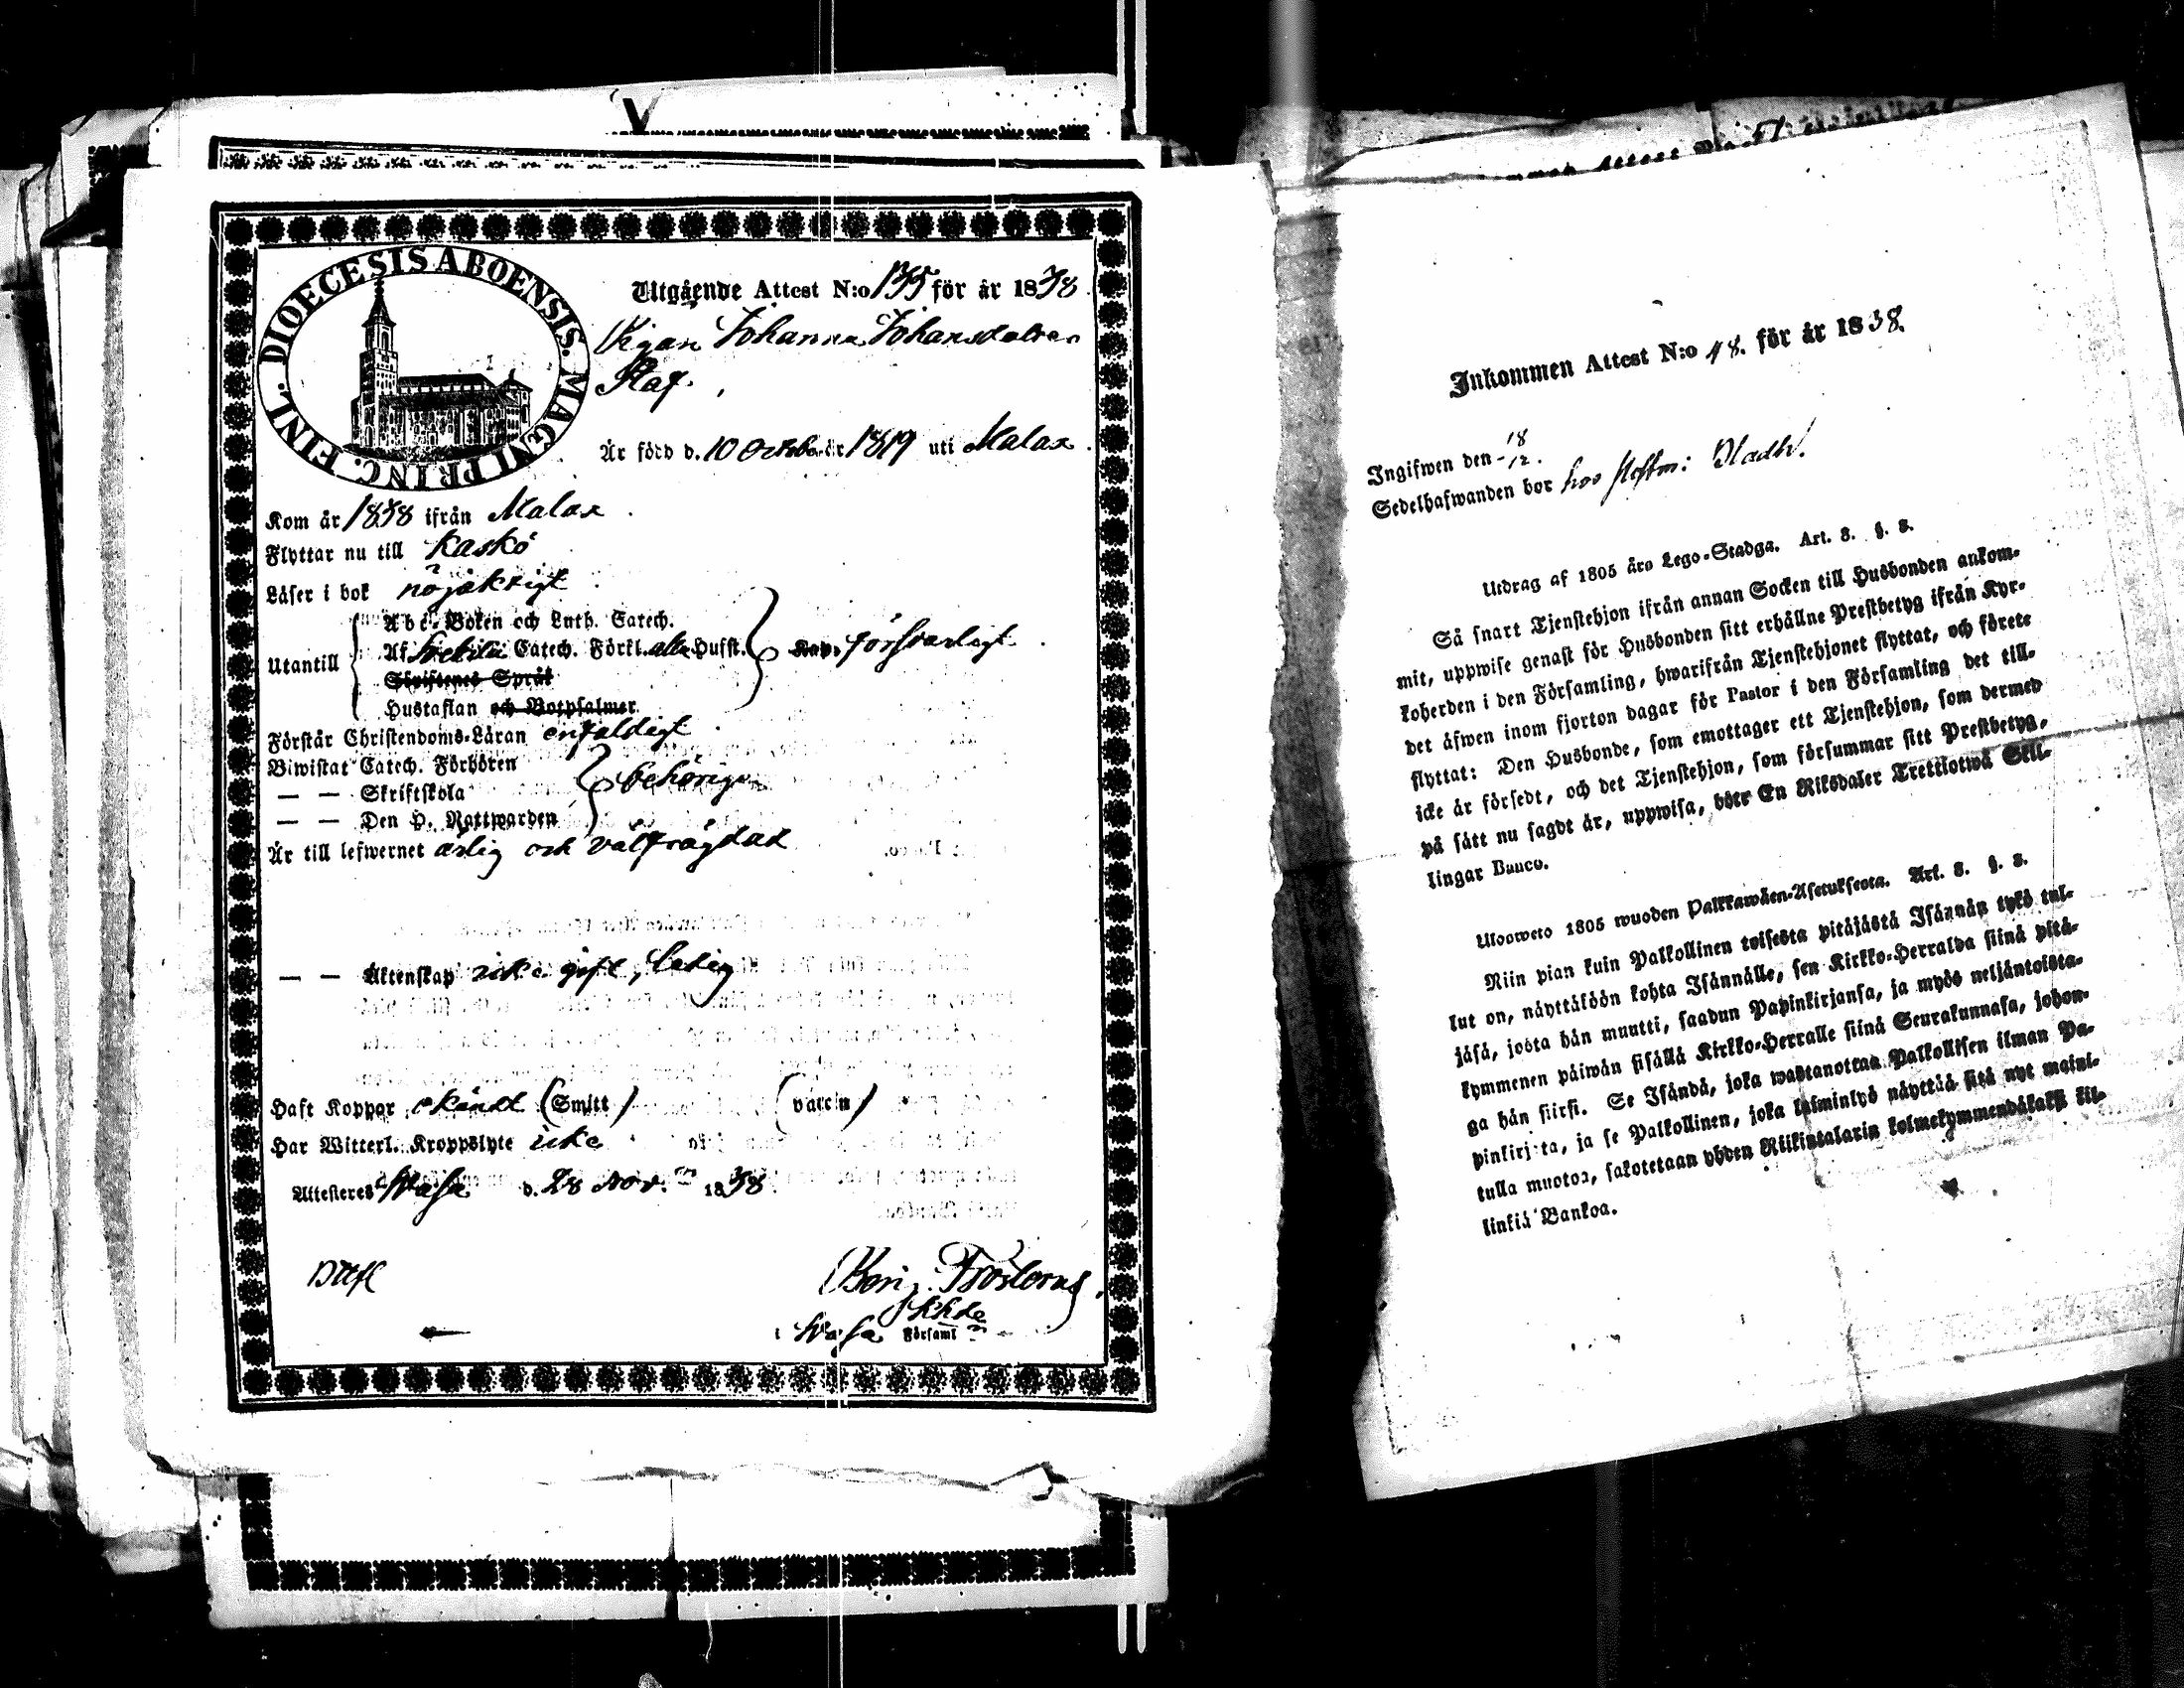 DIOECESIS ABOENSIS. MAGNI PRINC. FINL.
Utgående Attest N:o 135 för år 1838.
Pigan Johanna Johansdotter
Raf.
Är född d. 10 October 1819 uti Malax.
Kom år 1838 ifrån Malax.
Flyttar nu till Kaskö
Läser i bok nöjaktigt
Abc-Boken och Luth. Catech.
Utantill Af Svebilii Catech. Förkl. alla Hufst. Kap. försvarligt.
Skriftenes Språk
Hustaflan och Botpsalmer
Förstår Christendoms-Läran enfaldigt
Biwistat Catech. Förhören
— — Skriftskola behörigen
— — Den H. Nattwarden
Är till lefwernet ärlig och välfrägdad
— — Äktenskap icke gift, ledig
Haft Koppor okändt (Smitt) (vaccin)
Har Witterl. Kroppslyte icke
Attesteras Wasa d. 28 Nov. 1838.
Frosterus.
i Wasa Församl
Inkommen Attest N:o 48. för år 1838.
Ingifwen den 18/12.
Sedelhafwanden bor hos
Utdrag af 1805 års Lego-Stadga. Art. 8. §. 8.
Så snart Tjenstehjon ifrån annan Socken till Husbonden ankom-
mit, uppwise genast för Husbonden sitt erhållne Prestbetyg ifrån Kyr-
koherden i den Församling, hwarifrån Tjenstehjonet flyttat, och förete
det äfwen inom fjorton dagar för Pastor i den Församling det till-
flyttat: Den Husbonde, som emottager ett Tjenstehjon, som dermed
icke är försedt, och det Tjenstehjon, som försummar sitt Prestbetyg,
på sätt nu sagdt är, uppwisa, böte En Riksdaler Trettiotwå Skil-
lingar Banco.
Ulosweto 1805 wuoden Palkkawäen-Asetuksesta. Art. 8. §. 8.
Niin pian kuin Palkollinen toisesta pitäjästä Isännän tykö tul-
lut on, näyttäköön kohta Isännälle, sen Kirkko-Herralda siinä pitä-
jäsä, josta hän muutti, saadun Papinkirjansa, ja myös neljäntoista-
kymmenen päiwän sisällä Kirkko-Herralle siinä Seurakunnasa, johon-
ga hän siirsi. Se Isändä, joka wastanottaa Palkollisen ilman Pa-
pinkirjata, ja se Palkollinen, joka laiminlyö näyttää sitä nyt maini-
tulla muotoa, sakotetaan yhden Riikintalarin kolmekymmendäkaksi kil-
linkiä Bankoa.